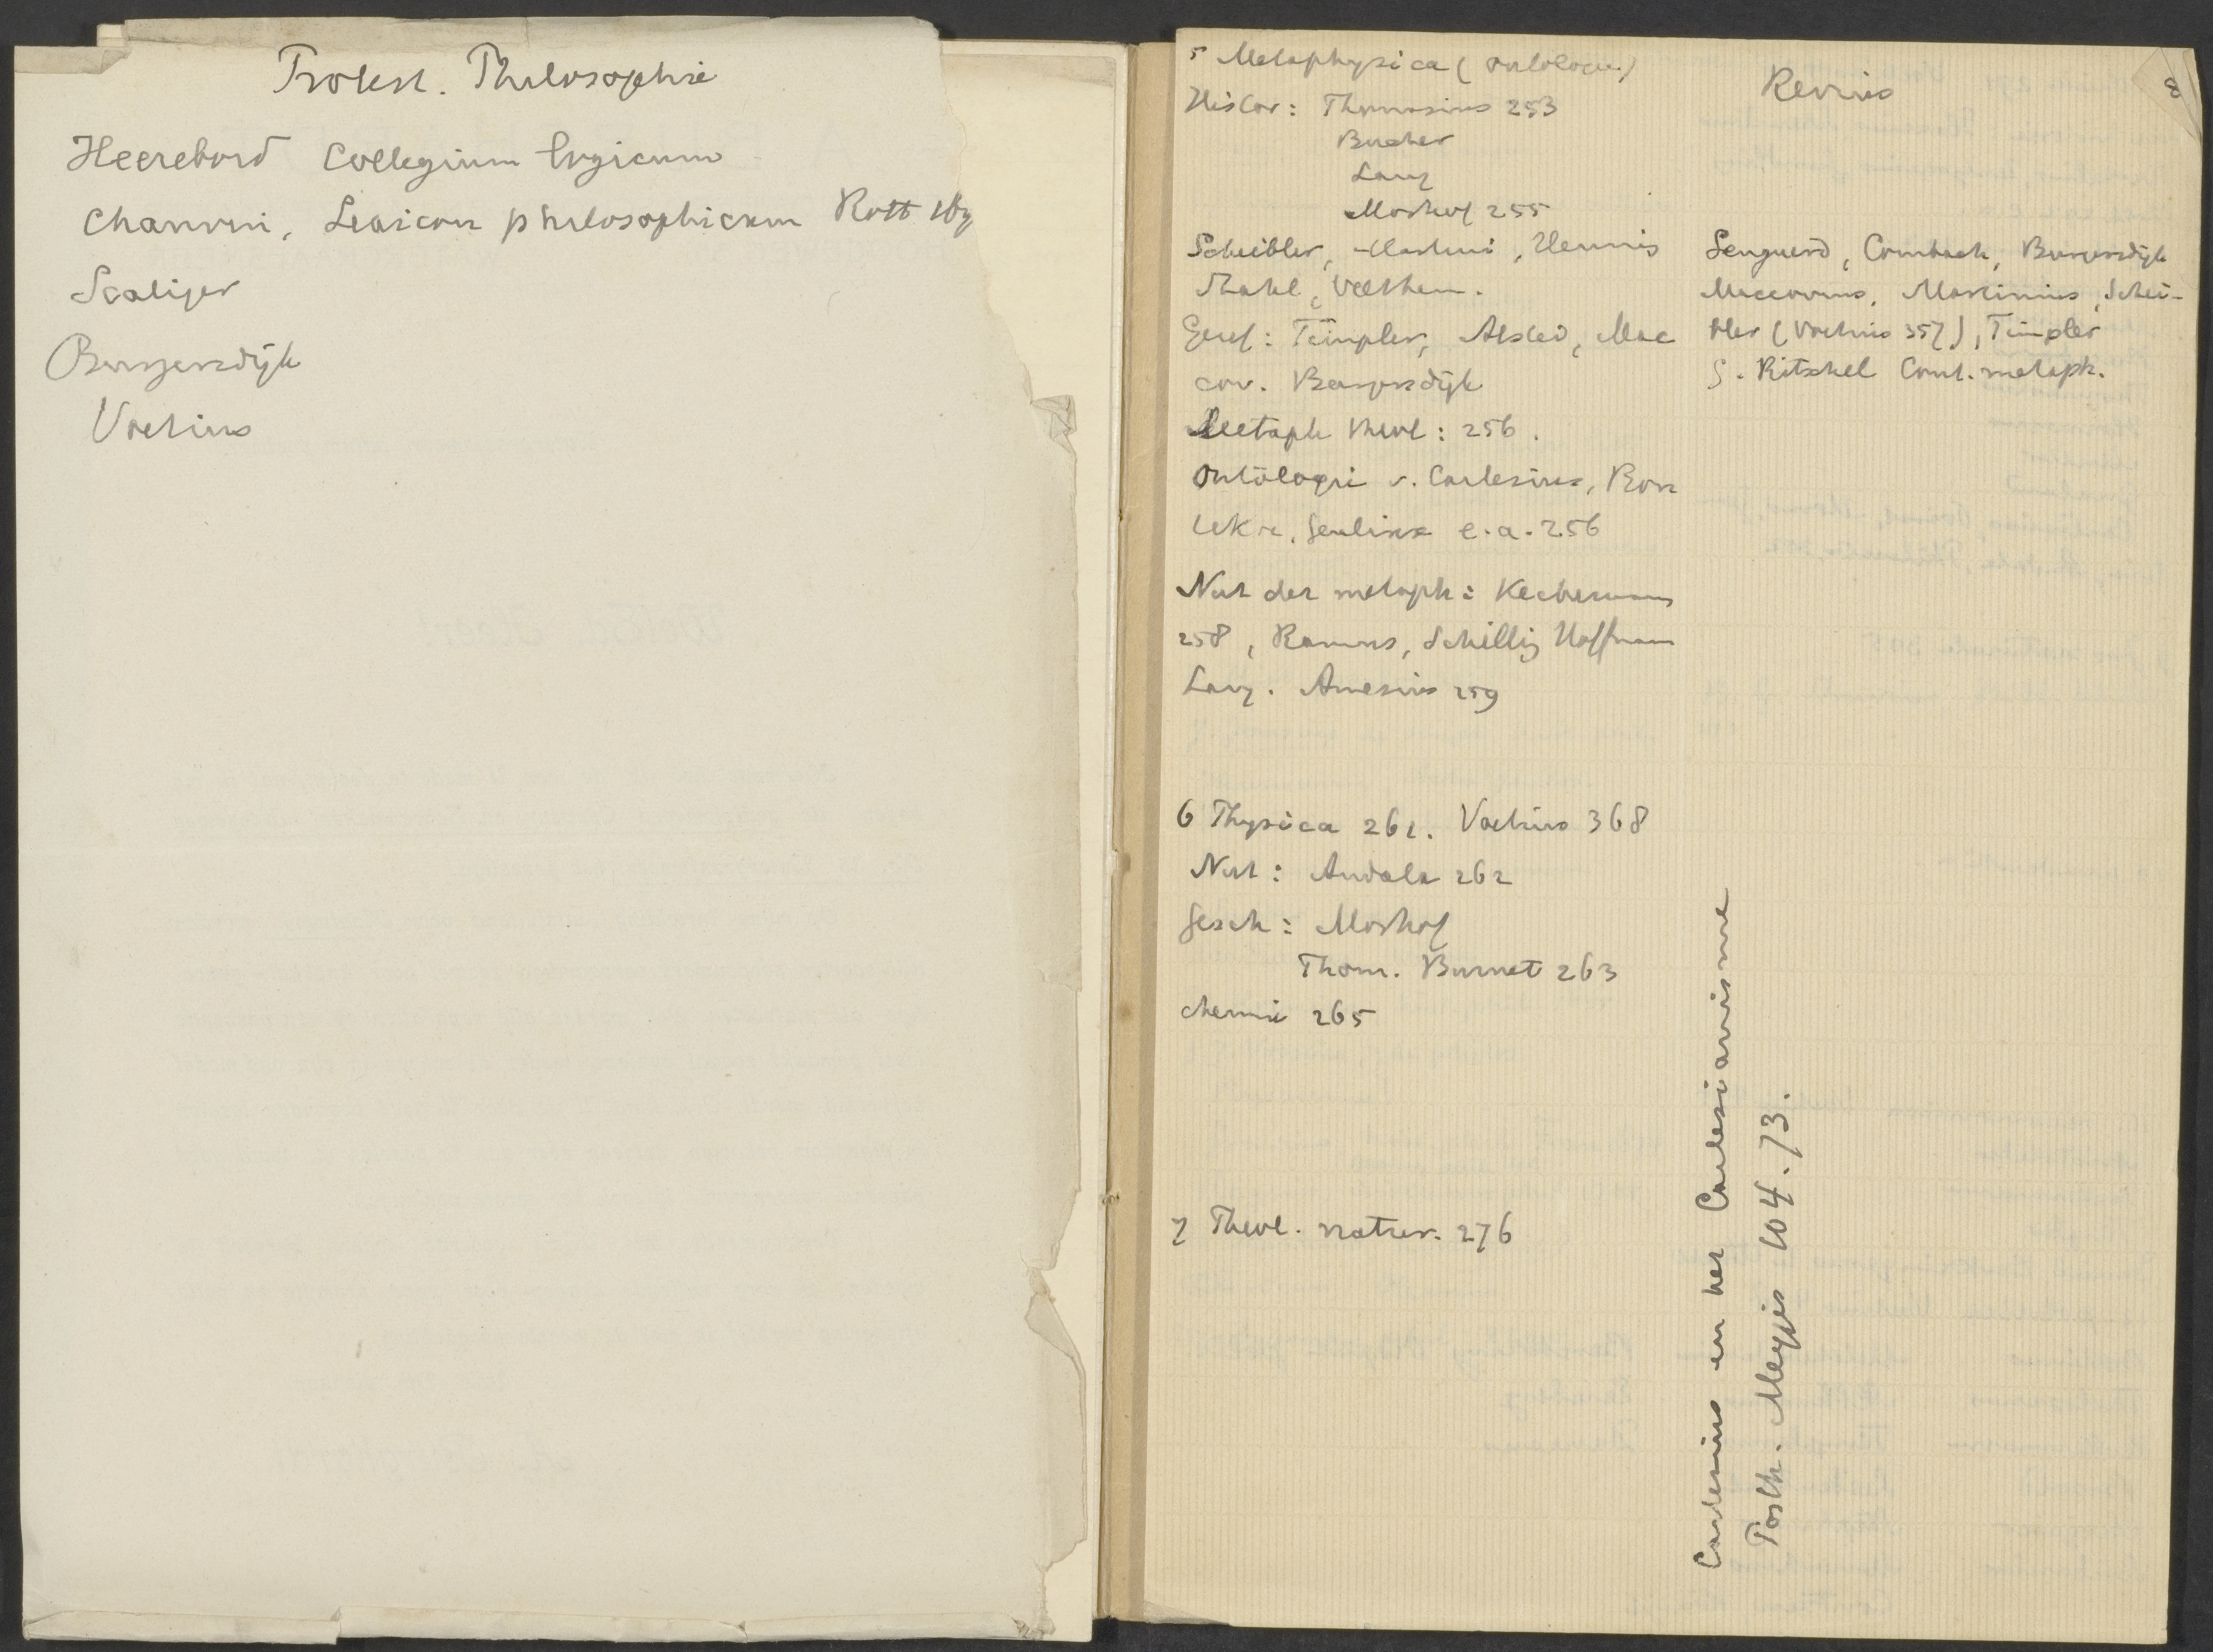 Protest. Philosophie
Heerebord Collegium logicum
Chauvin, Lexicon philosophicum Rott 169
Scaliger
Burgersdijk
Voetius
5 Metaphysica (ontologie)
Histor: Thomasius 253
Bucher
Lang
Morhof 255
Scheibler, Martini, Hennis
Stahl, Velthem.
Geref: Timpler, Alsted, Mac
cov. Burgersdijk
Metaph theol: 256.
Ontologie v. Cartesius, Bon
tekoe, Geulinx e.a. 256
Nut der metaph: Keckermann
258, Ramus, Schilling Hoffman
Lang. Amesius 259
6 Physica 261. Voetius 368
Nut: Andala 262
Gesch: Morhof
Thom. Burnet 263
chemie 265
7 Theol. natur. 276
Revius
8
Senguerd, Combach, Burgersdijk
Maccovius, Martinius, Schei-
bler (Voetius 357), Timpler
G. Ritschel Cont. metaph.
Cartesius en het Cartesianisme
Posth. Meyjes 104.73.